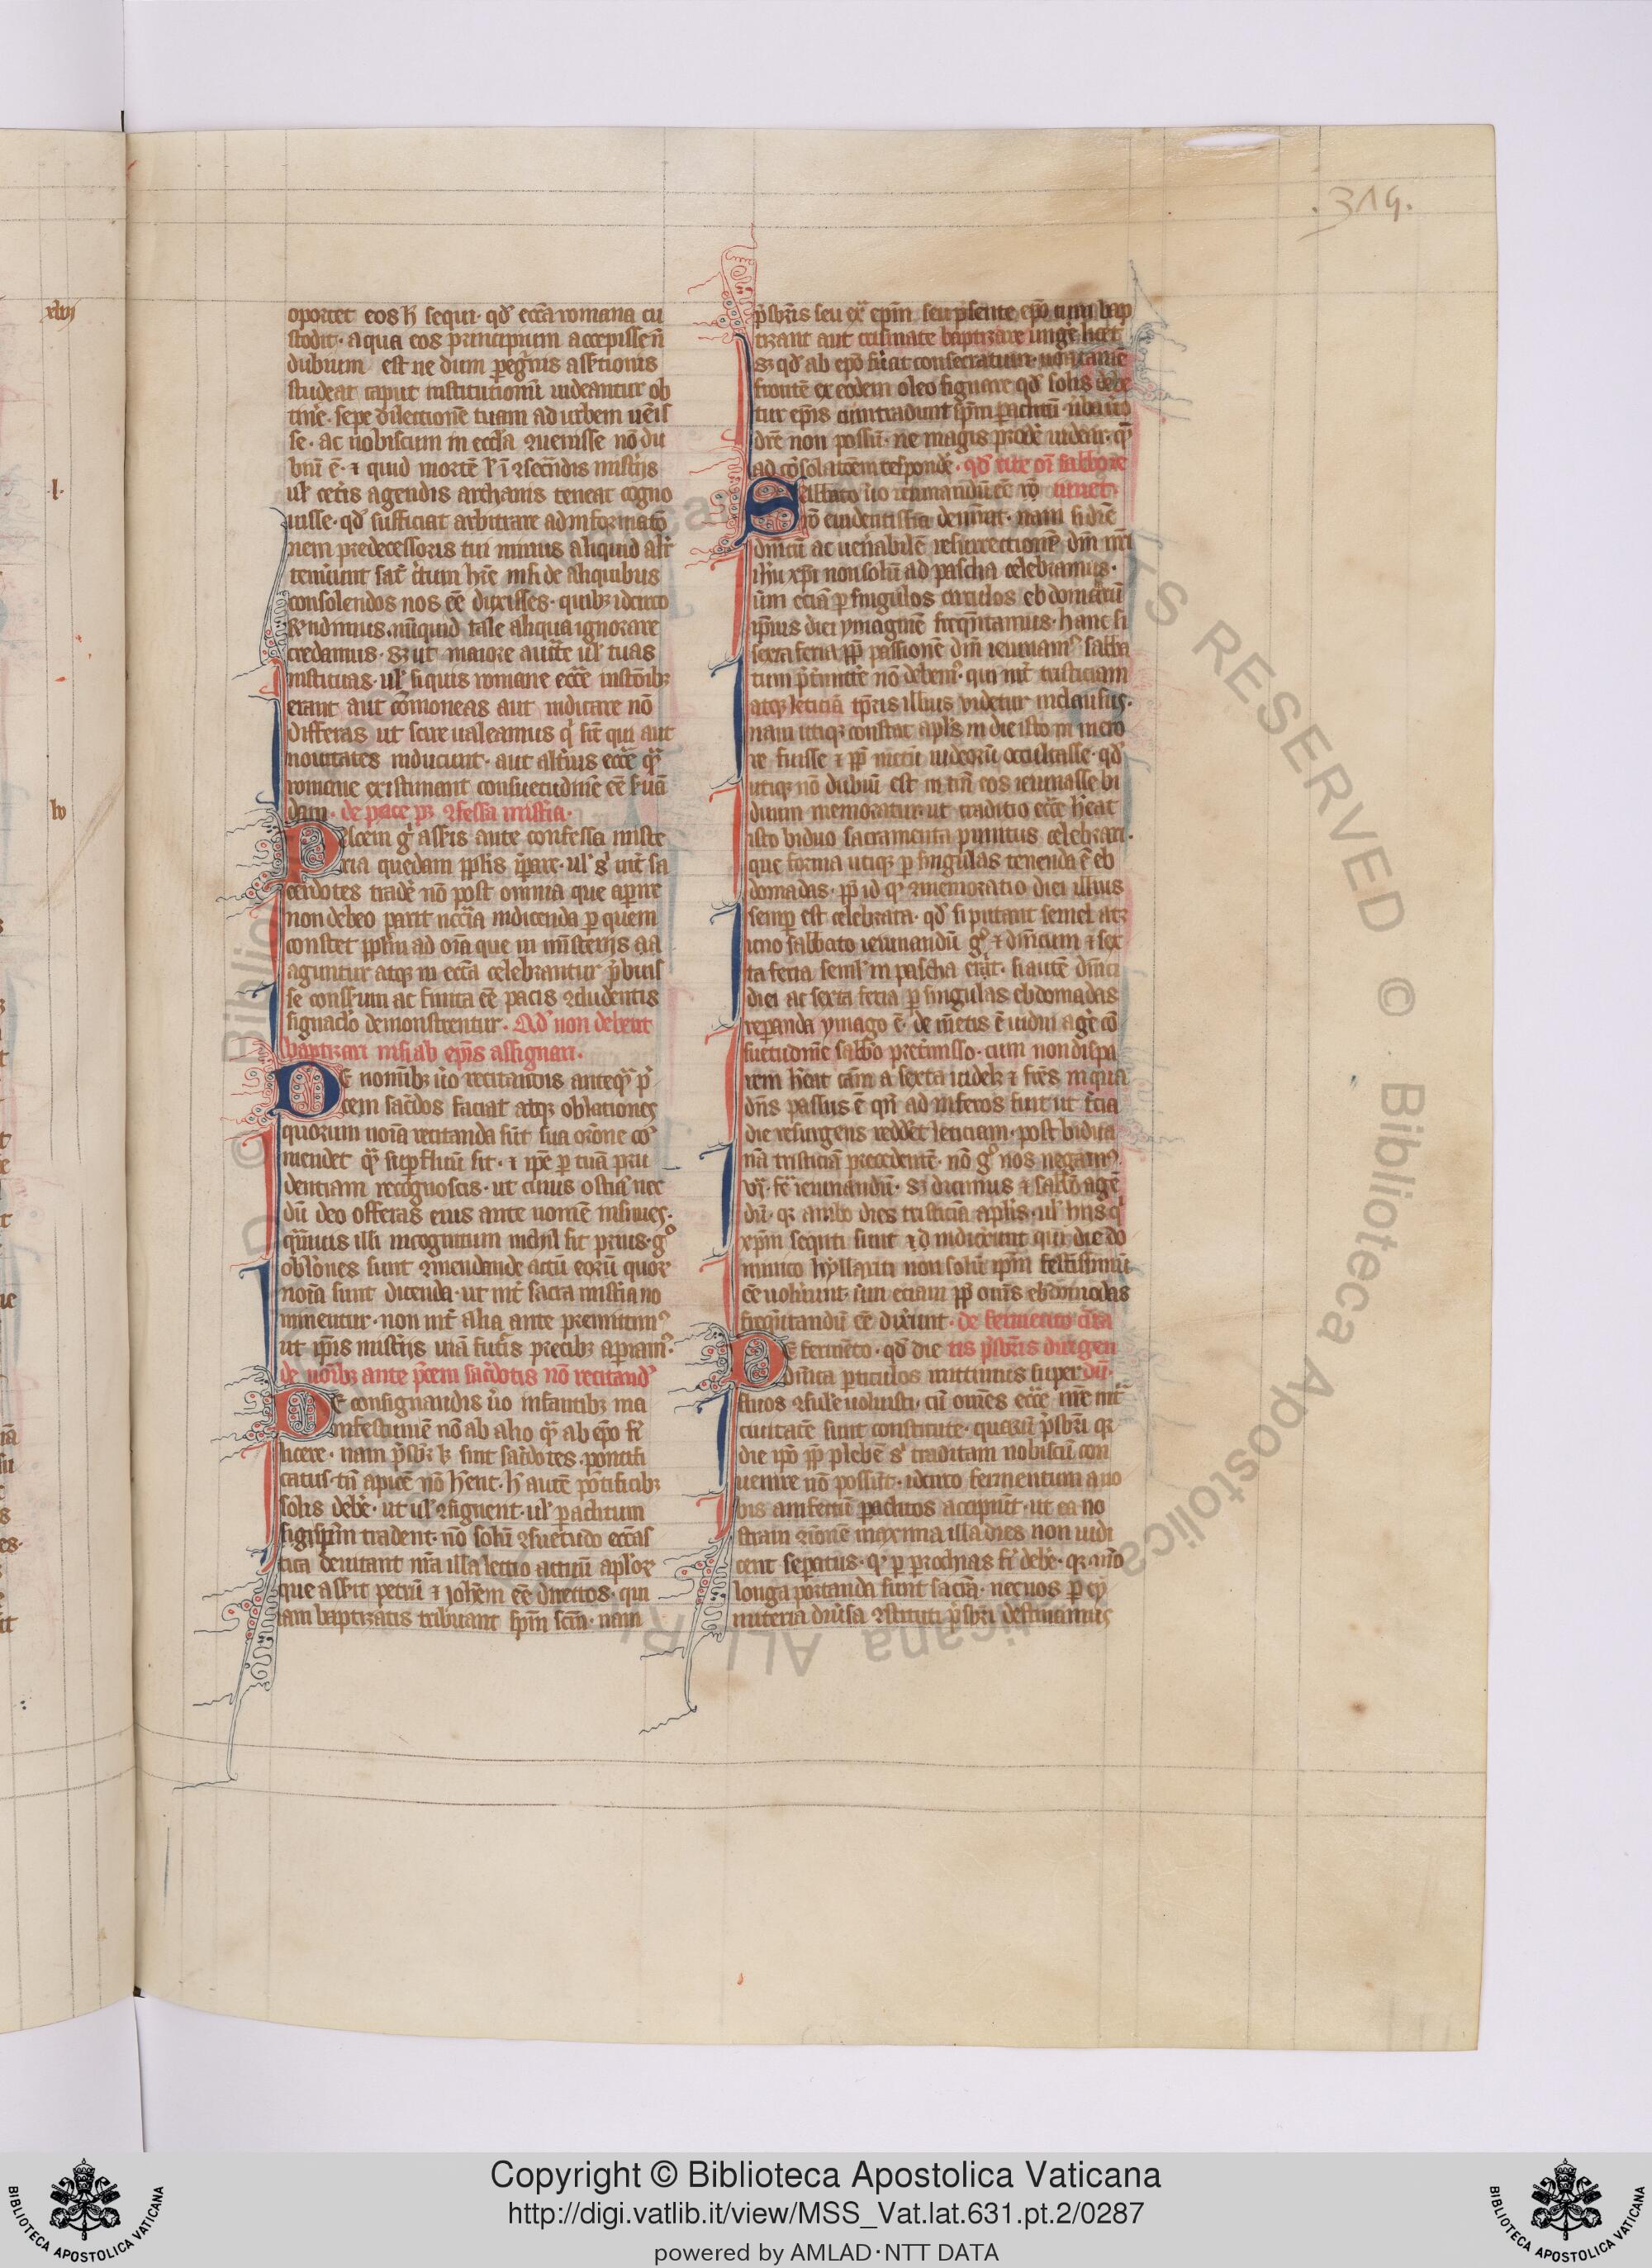 .319.
xlvij
.l.
lv
oportet eos h̄ sequi· qd̄ ecc̄a romana cu
stodit· a qua eos principium accepisse n̄
dubium est ne dum peg̓nis assertionis
studeat caput institutionū uideantur ob
tin̄e· sepe dilectionē tuam ad urbem uēis
se· ac nobiscum in ecc̄ia ꝯuenisse nō du
biū ē· ⁊ quid morē ul̓ ī ꝯsecr̄andis mist̓iis
ul̓ cet̓is agendis archanis teneat cogno
uisse· qd̄ sufficiat arbitrare ad informatō
nem predecessoris tui minus aliquid alr̄
tenuiunt sat̄ c̓tum hr̄e nisi de aliquibus
consolendos nos ēē dixisses· quibꝫ idcirco
Rn̄dimus nūquid tale aliqua ignorare
credamus· sꝫ ut maiore auc̄te ul̓ tuas
instituas· ul̓ siquis romane ecc̄e instōibꝫ
erant aut cōmoneas aut iudicare nō
differas ut scire ualeamus q̓ sūt qui aut
nouitates inducunt· aut alt̓ius ecc̄e q̄ꝫ
romane existimant consuetudinē ēē s̓uā
dam· de pace pꝫ ꝯfessa mist̓ia·
Pacem g̓ ass̓is ante confessa miste
ria quedam pp̄lis ip̄are· ul̓ s̓ int̄ sa
cerdotes tradē nō post omnia que apire
non debeo pacit necc̄ia indicenda p quem
constet pp̄lm ad oīa que in mīsterijs aa
aguntur atqꝫ in ecc̄a celebrantur p̓buis
se consensum ac finita ēē pacis ꝯcludentis
signaclo demonstrentur· Qd̄ non debent
baptizari nisi ab ep̄is assignari·
De nomībꝫ ūo recitandis anteq̄ p̓
cem sac̄dos faciat atqꝫ oblationes
quorum noīa recitanda sūt sua orōne cō
mendet q̄ sup̄fluū sit· ⁊ ip̄e p tuā pru
dentiam recognoscis· ut cuius ostiā nec
dū deo offeras eius ante nomē insinues·
q̄muis illi incognitum nichil sit prius· g̊
oblōnes sunt ꝯmendande actū eorū quoꝝ
noīa sunt dicenda· ut int̓ sacra mist̓ia no
minentur· non int̓ alia ante premittim᷒
ut ip̄is mist̓iis uiā futūis precibꝫ apiam᷒·
de nōībꝫ ante p̄cem sac̄dotis nō recitand̓
De consignandis ūo infantibꝫ ma
nifestum ē nō ab alio q̄ ab ep̄o fi̓
licere· nam p̓sbr̄i lꝫ sint sac̄dotes· pontifi
catus· tn̄ apicē nō hn̄t· h̄ autē pōtificibꝫ
solis debē· ut ul̓ ꝯsignent· ul̓ paclitum
sig· sp̄m tradent· nō solū ꝯsuetudo ecc̄as
tica
que ass̓it petrū ⁊ ioh̄em ēē directos· qui
iam baptizatis tribuant sp̄m sc̄m· nam
p̓sbr̄is seu ex̄ ep̄m· seu p̄sente ep̄o cum bap
tizant aut crismate baptizare unge̓ licet
sꝫ qd̄ ab ep̄o fūit consecratum· nō tamē
frontē ex eodem oleo signare qd̄ solis debe
tur ep̄is cum tradunt sp̄m paclitū· ūba ūo
dic̄e non possū· ne magis prodē uidear· q̄
ad cōsolatōem respondē· qd̄ rite oī sabbo ie
Sabbato ūo ieiunandū ēē rō iunet·
rō euidentissīa demr̄at· nam si diē
dn̄icū ac uen̄abilē resurrectionē dn̄i nr̄i
ih̄u xp̄i non solū ad pascha celebramus·
ūm eciā p singulos circulos ebdomadū
ip̄ius diei ymaginē freq̄ntamus· hanc si
sexta feria pp̄ passionē dn̄i ieiunam᷒ sabba
tum p̓tmitt̓e nō debem᷒· qui int̓ tristiciam
atqꝫ leticiā tp̄ris illius videtur inclausus·
nam utiqꝫ constat apl̓s in die isto in mero
re fuisse ⁊ pp̄ metū iudeorū occultasse· qd̄
utiqꝫ nō dubiū est in tm̄ eos ieiunasse bi
duum memoratur· ut traditio ecc̄e h̄eat
isto biduo sacramenta penitus celebrari·
que forma utiqꝫ p singulas tenenda ē eb
domadas· pp̄ id qꝫ ꝯmemoratio diei illius
semp est celebrata· qd̄ si putant semel atꝫ
uno sabbato ieiunandū g̊ ⁊ dn̄icum ⁊ sex
ta feria semel in pascha erūt· si autē dn̄ici
diei ac sexta feria p singulas ebdomadas
repanda ymago ē· de m̄etis ē uidui age̓ cō
suetudinē sabbo pret̄misso· cum non dispa
rem h̄eat cām a sexta uidelꝫ ⁊ feria in qua
dn̄s passus ē qn̄ ad inferos fuit ut t̄cia
die resurgens redd̓et leticiam· post bidua
nā tristiciā precedentē· nō g̊ nos negam᷒·
vi· fe̓ ieiunandū· sꝫ dicimus ⁊ sabb̄o agē
dū· qꝫ ambo dies tristiciā apl̓is· ul̓ hiis q̓
xp̄m sequti sunt ⁊ d̄ indicerunt qui die do
minico hyllariti non solū ip̄m festissimū
ēē uoluerunt· sūn eciam pp̄ om̄s ebdomodas
freq̄ntandū ēē dixerunt· de fermento circa
De fermēto· qd̄ die tis p̓sbr̄is dirigen
dn̄ica p titulos mittimus super dū·
fluos ꝯsule̓ uoluisti· cū om̄es ecc̄e nr̄e int̓
ciuitatē sunt constitute· quarū p̓sbr̄i qꝫ
die ip̄o pp̄ plebē s̓ traditam nobiscū con
uenire nō possūt· idcirco fermentum a no
bis confectū paclitos accipiūt· ut ea no
stram ꝯīonē maxima illa dies non iudi
cent separatus· q̓ p prochias fi̓ debē· qꝫ nō
longa portanda sunt sacr̄a· nec nos p cy
miteria diūsa ꝯstitutis p̓sbr̄is destinamus
Copyright © Biblioteca Apostolica Vaticana
http://digi.vatlib.it/view/MSS_Vat.lat.631.pt.2/0287
powered by AMLAD·NTT DATA
BIBLIOTECA APOSTOLICA VATICANA
BIBLIOTECA APOSTOLICA VATICANA